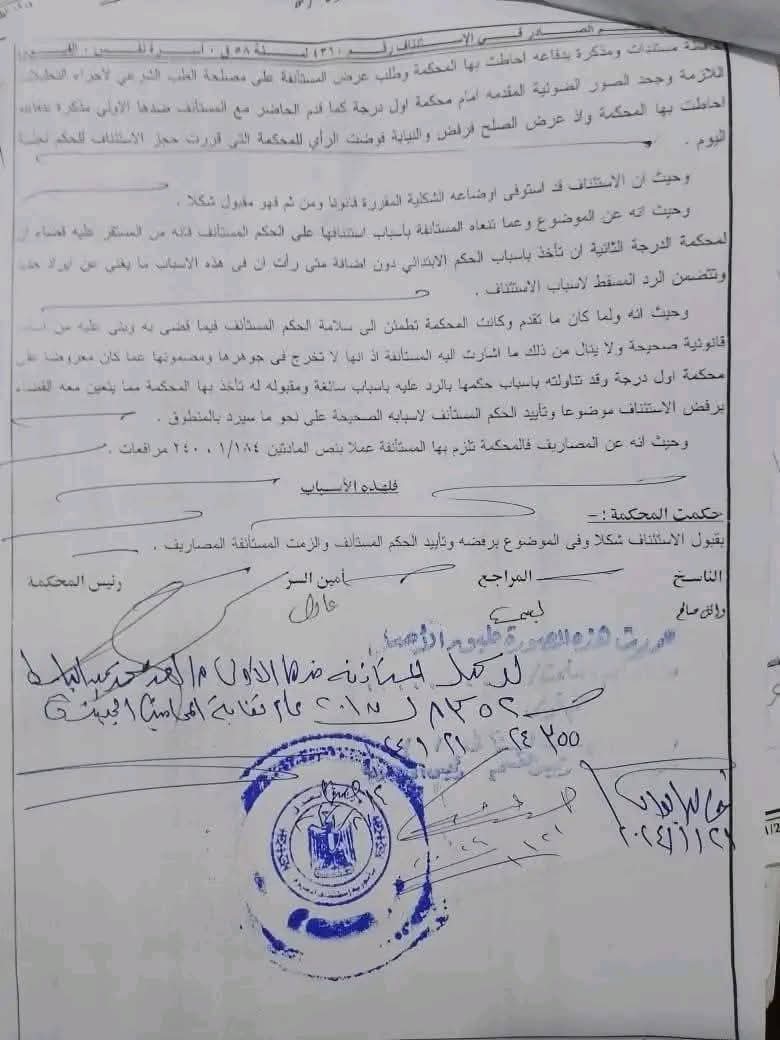 الصادر في الاستئناف رقم ٣٦٠ لسنة ٥٨ ق . أسرة نفس . الفيوم
مستندات ومذكرة بدفاعه احاطت بها المحكمة وطلب عرض المستأنفة على مصلحة الطب الشرعي لأجراء التحليلات
اللازمة وجحد الصور الضوئية المقدمه امام محكمة اول درجة كما قدم الحاضر مع المستأنف ضدها الاولى مذكرة بدفاعه
احاطت بها المحكمة واذ عرض الصلح فرفض والنيابة فوضت الرأي للمحكمة التى قررت حجز الاستئناف للحكم لجلسة
اليوم .
وحيث ان الاستئناف قد استوفى اوضاعه الشكلية المقررة قانونا ومن ثم فهو مقبول شكلا .
وحيث انه عن الموضوع وعما تنعاه المستانفة بأسباب استئنافها على الحكم المستأنف فانه من المستقر عليه قضاء ان
لمحكمة الدرجة الثانية ان تأخذ باسباب الحكم الابتدائي دون اضافة متى رأت ان فى هذه الاسباب ما يغني عن ايراد جديد
وتتضمن الرد المسقط لاسباب الاستئناف .
وحيث انه ولما كان ما تقدم وكانت المحكمة تطمئن الى سلامة الحكم المستأنف فيما قضى به وبني عليه من اسباب
قانونية صحيحة ولا ينال من ذلك ما اشارت اليه المستأنفة اذ انها لا تخرج فى جوهرها ومضمونها عما كان معروضا على
محكمة اول درجة وقد تناولته باسباب حكمها بالرد عليه باسباب سائغة ومقبوله له تأخذ بها المحكمة مما يتعين معه القضاء
برفض الاستئناف موضوعا وتأييد الحكم المستأنف لاسبابه الصحيحة على نحو ما سيرد بالمنطوق .
وحيث انه عن المصاريف فالمحكمة تلزم بها المستأنفة عملا بنص المادتين ١/١٨٤ ، ٢٤٠ مرافعات .
فلهذه الأسباب
حكمت المحكمة :-
بقبول الاستئناف شكلا وفى الموضوع برفضه وتأييد الحكم المستأنف والزمت المستأنفة المصاريف .
الناسخ المراجع أمين السر رئيس المحكمة
وائل صالح بسمه عادل
صورت هذه الصورة طبق الأصل
لوكيل المستأنف ضدها الاولى
٢٤٣٥٥